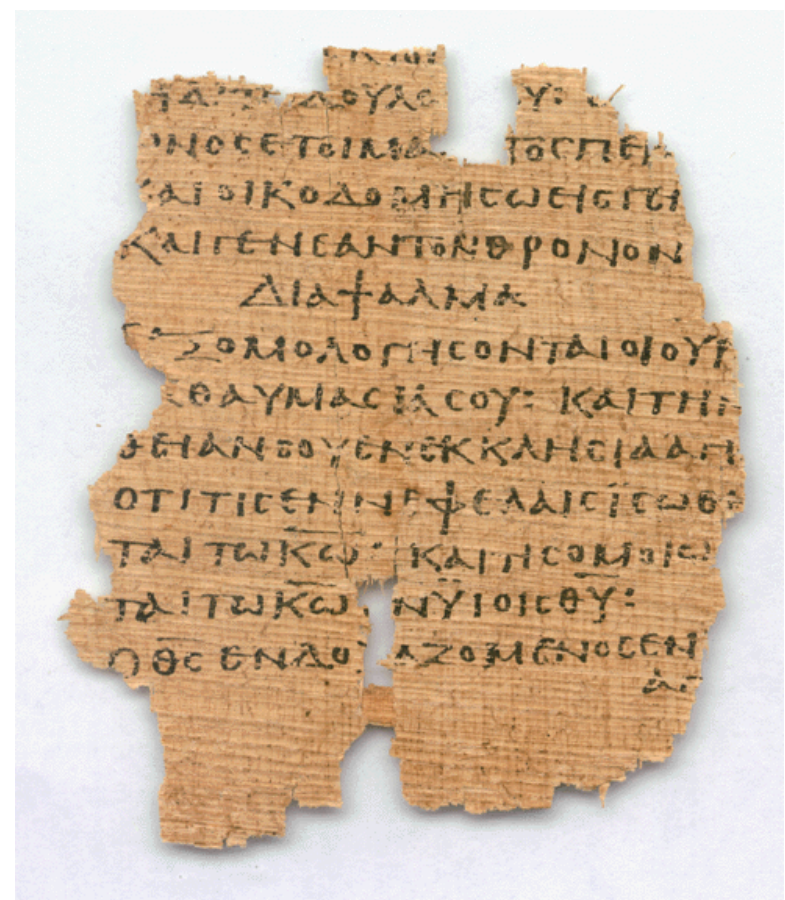 ΔΟΥΛΟ Υ:
ΝΟΣ ΕΤΟΙΜΑ ΤΟ ΣΠΕΡ
ΚΑΙ ΟΙΚΟΔΟΜΗΣΩ ΕΙΣ ΓΕΝ
ΚΑΙ ΓΕΝΕΑΝ ΤΟΝ ΘΡΟΝΟΝ
ΔΙΑΨΑΛΜΑ
ΕΞΟΜΟΛΟΓΗΣΟΝΤΑΙ ΟΙ ΟΥΡ
ΘΑΥΜΑΣΙΑ ΣΟΥ: ΚΑΙ ΤΗΝ
ΘΕΙΑΝ ΣΟΥ ΕΝ ΕΚΚΛΗΣΙΑ ΑΓΙ
ΟΤΙ ΤΙΣ ΕΝ ΝΕΦΕΛΑΙΣ ΪΣΩΘΗ
ΤΑΙ ΤΩ Κ̅Ω̅: ΚΑΙ ΤΙΣ ΟΜΟΙΩ
ΤΑΙ ΤΩ Κ̅Ω̅ ΕΝ ΫΙΟΙΣ Θ̅Υ̅:
Ο Θ̅Σ̅ ΕΝΔΟΞΑΖΟΜΕΝΟΣ ΕΝ
ΑΓ